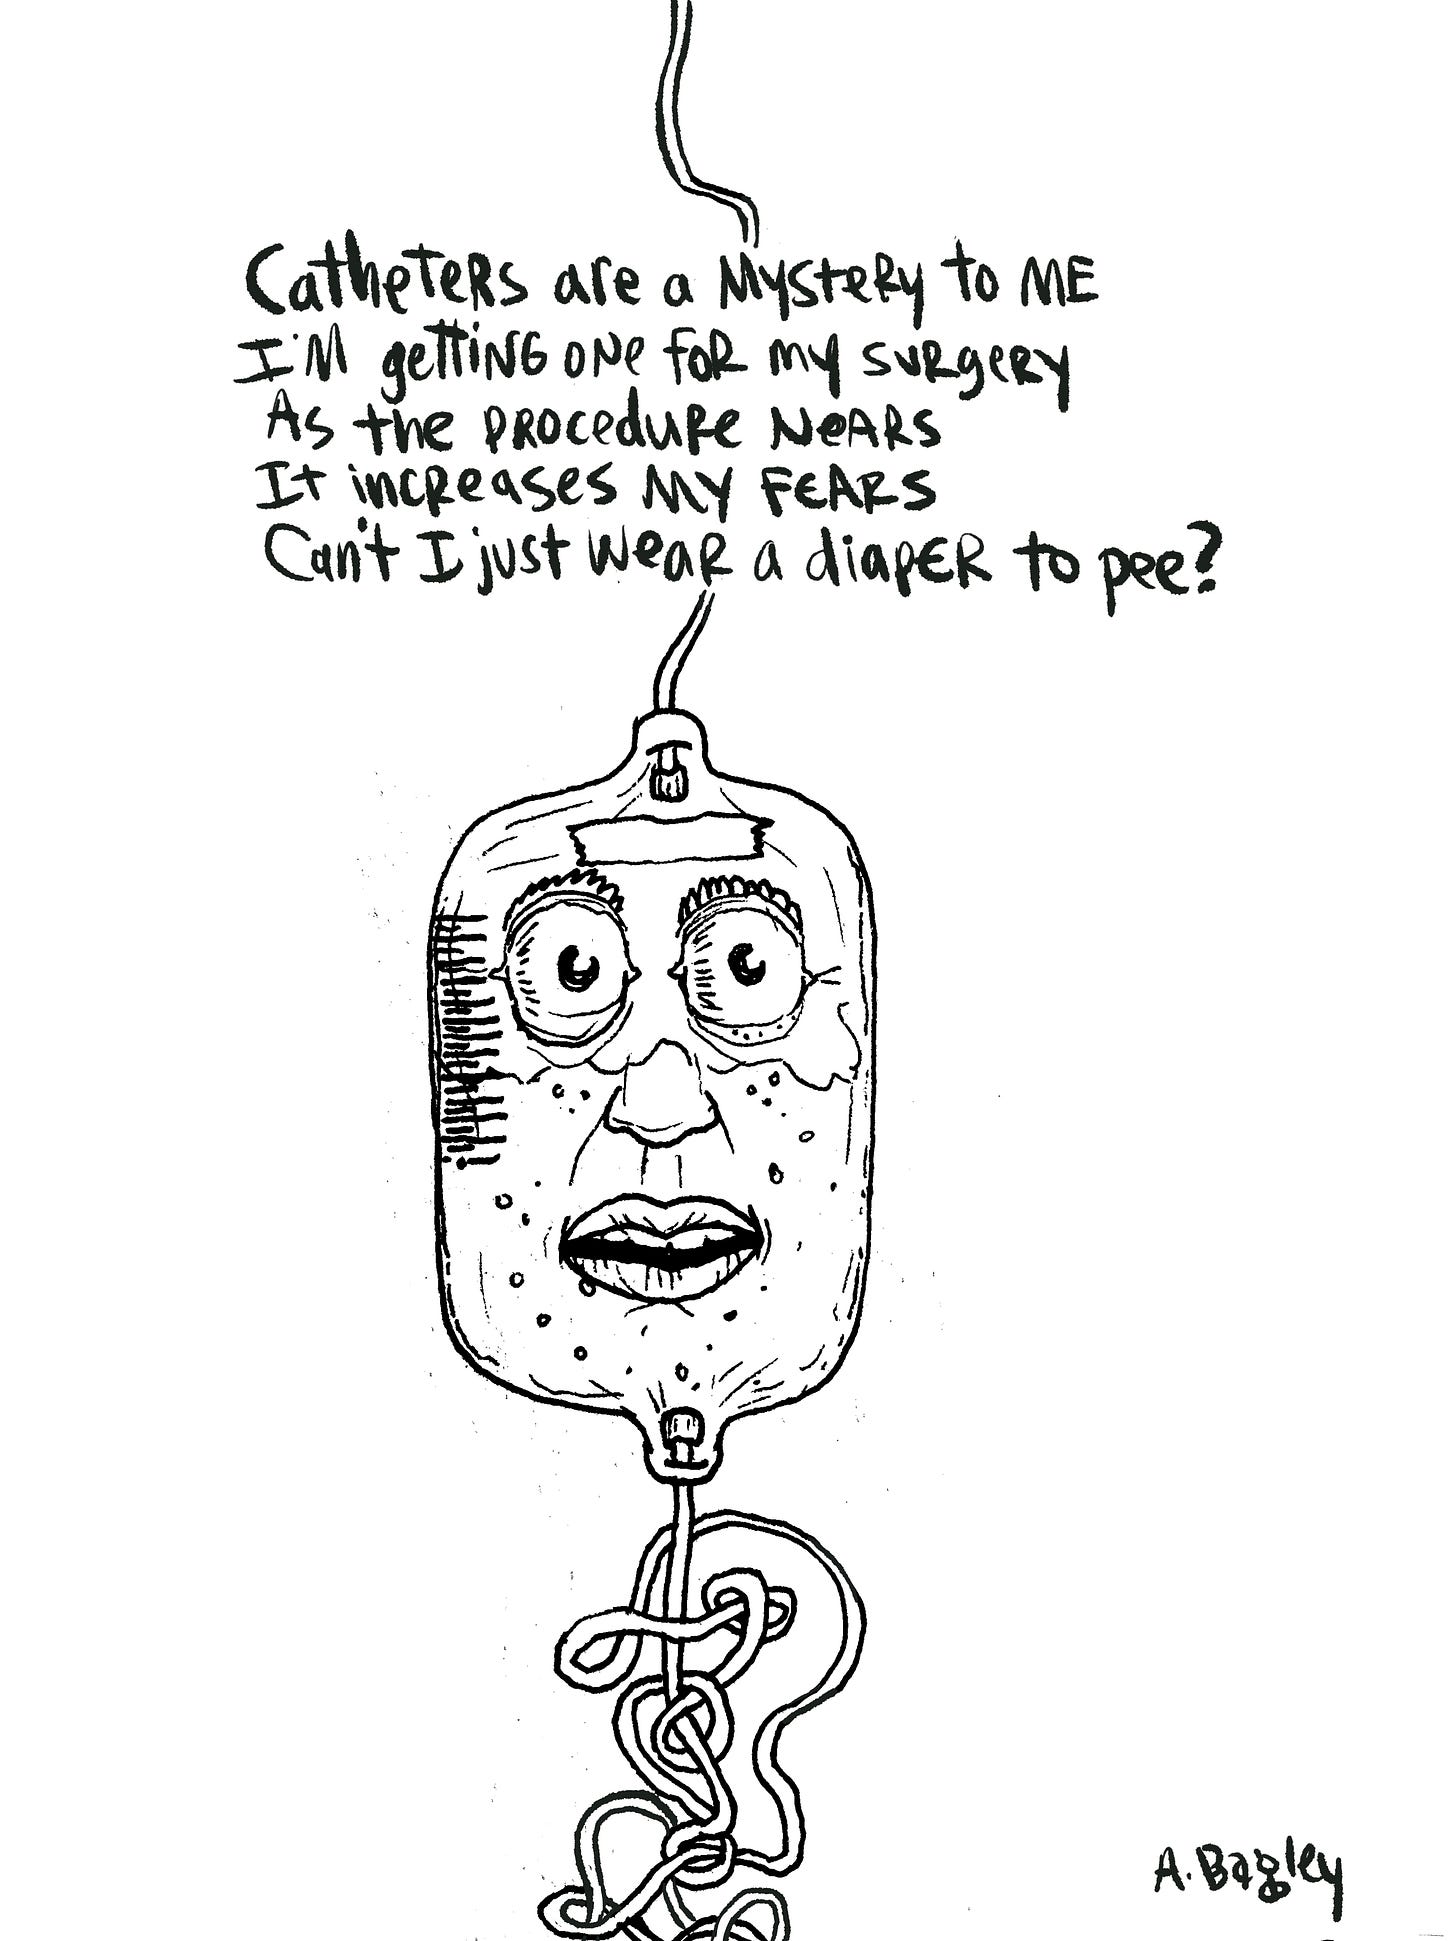 Catheters are a Mystery to ME
I'M getting one for my surgery
As the procedure nears
It increases My FEARS
Can't I just wear a diaper to pee?
A. Bagley